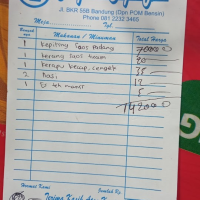 Jl. BKR 55B Bandung (Dpn POM Bensin)
Phone 081 2232 3465
Meja Tgl.
Banyak nya Makanan / Minuman Total Harga
1 Kepiting Saos Padang
1 kerang saos tiram 20
1 kerapu kecap, cengek 35
2 Nasi 12
1 Es teh manis 5
Hormat Kami Jumlah Rp.
Terima Kasih